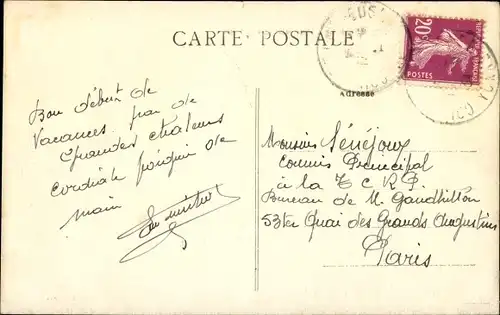 CARTE POSTALE
20c
POSTES
Adresse
Bon début de
Vacances, pas de
Grandes chaleurs
Cordiale poignée de
main
Monsieur Sénéjoux
Commis Principal
à la T C R P
Bureau de M. Gandhillon
53ter Quai des Grands Augustins
Paris